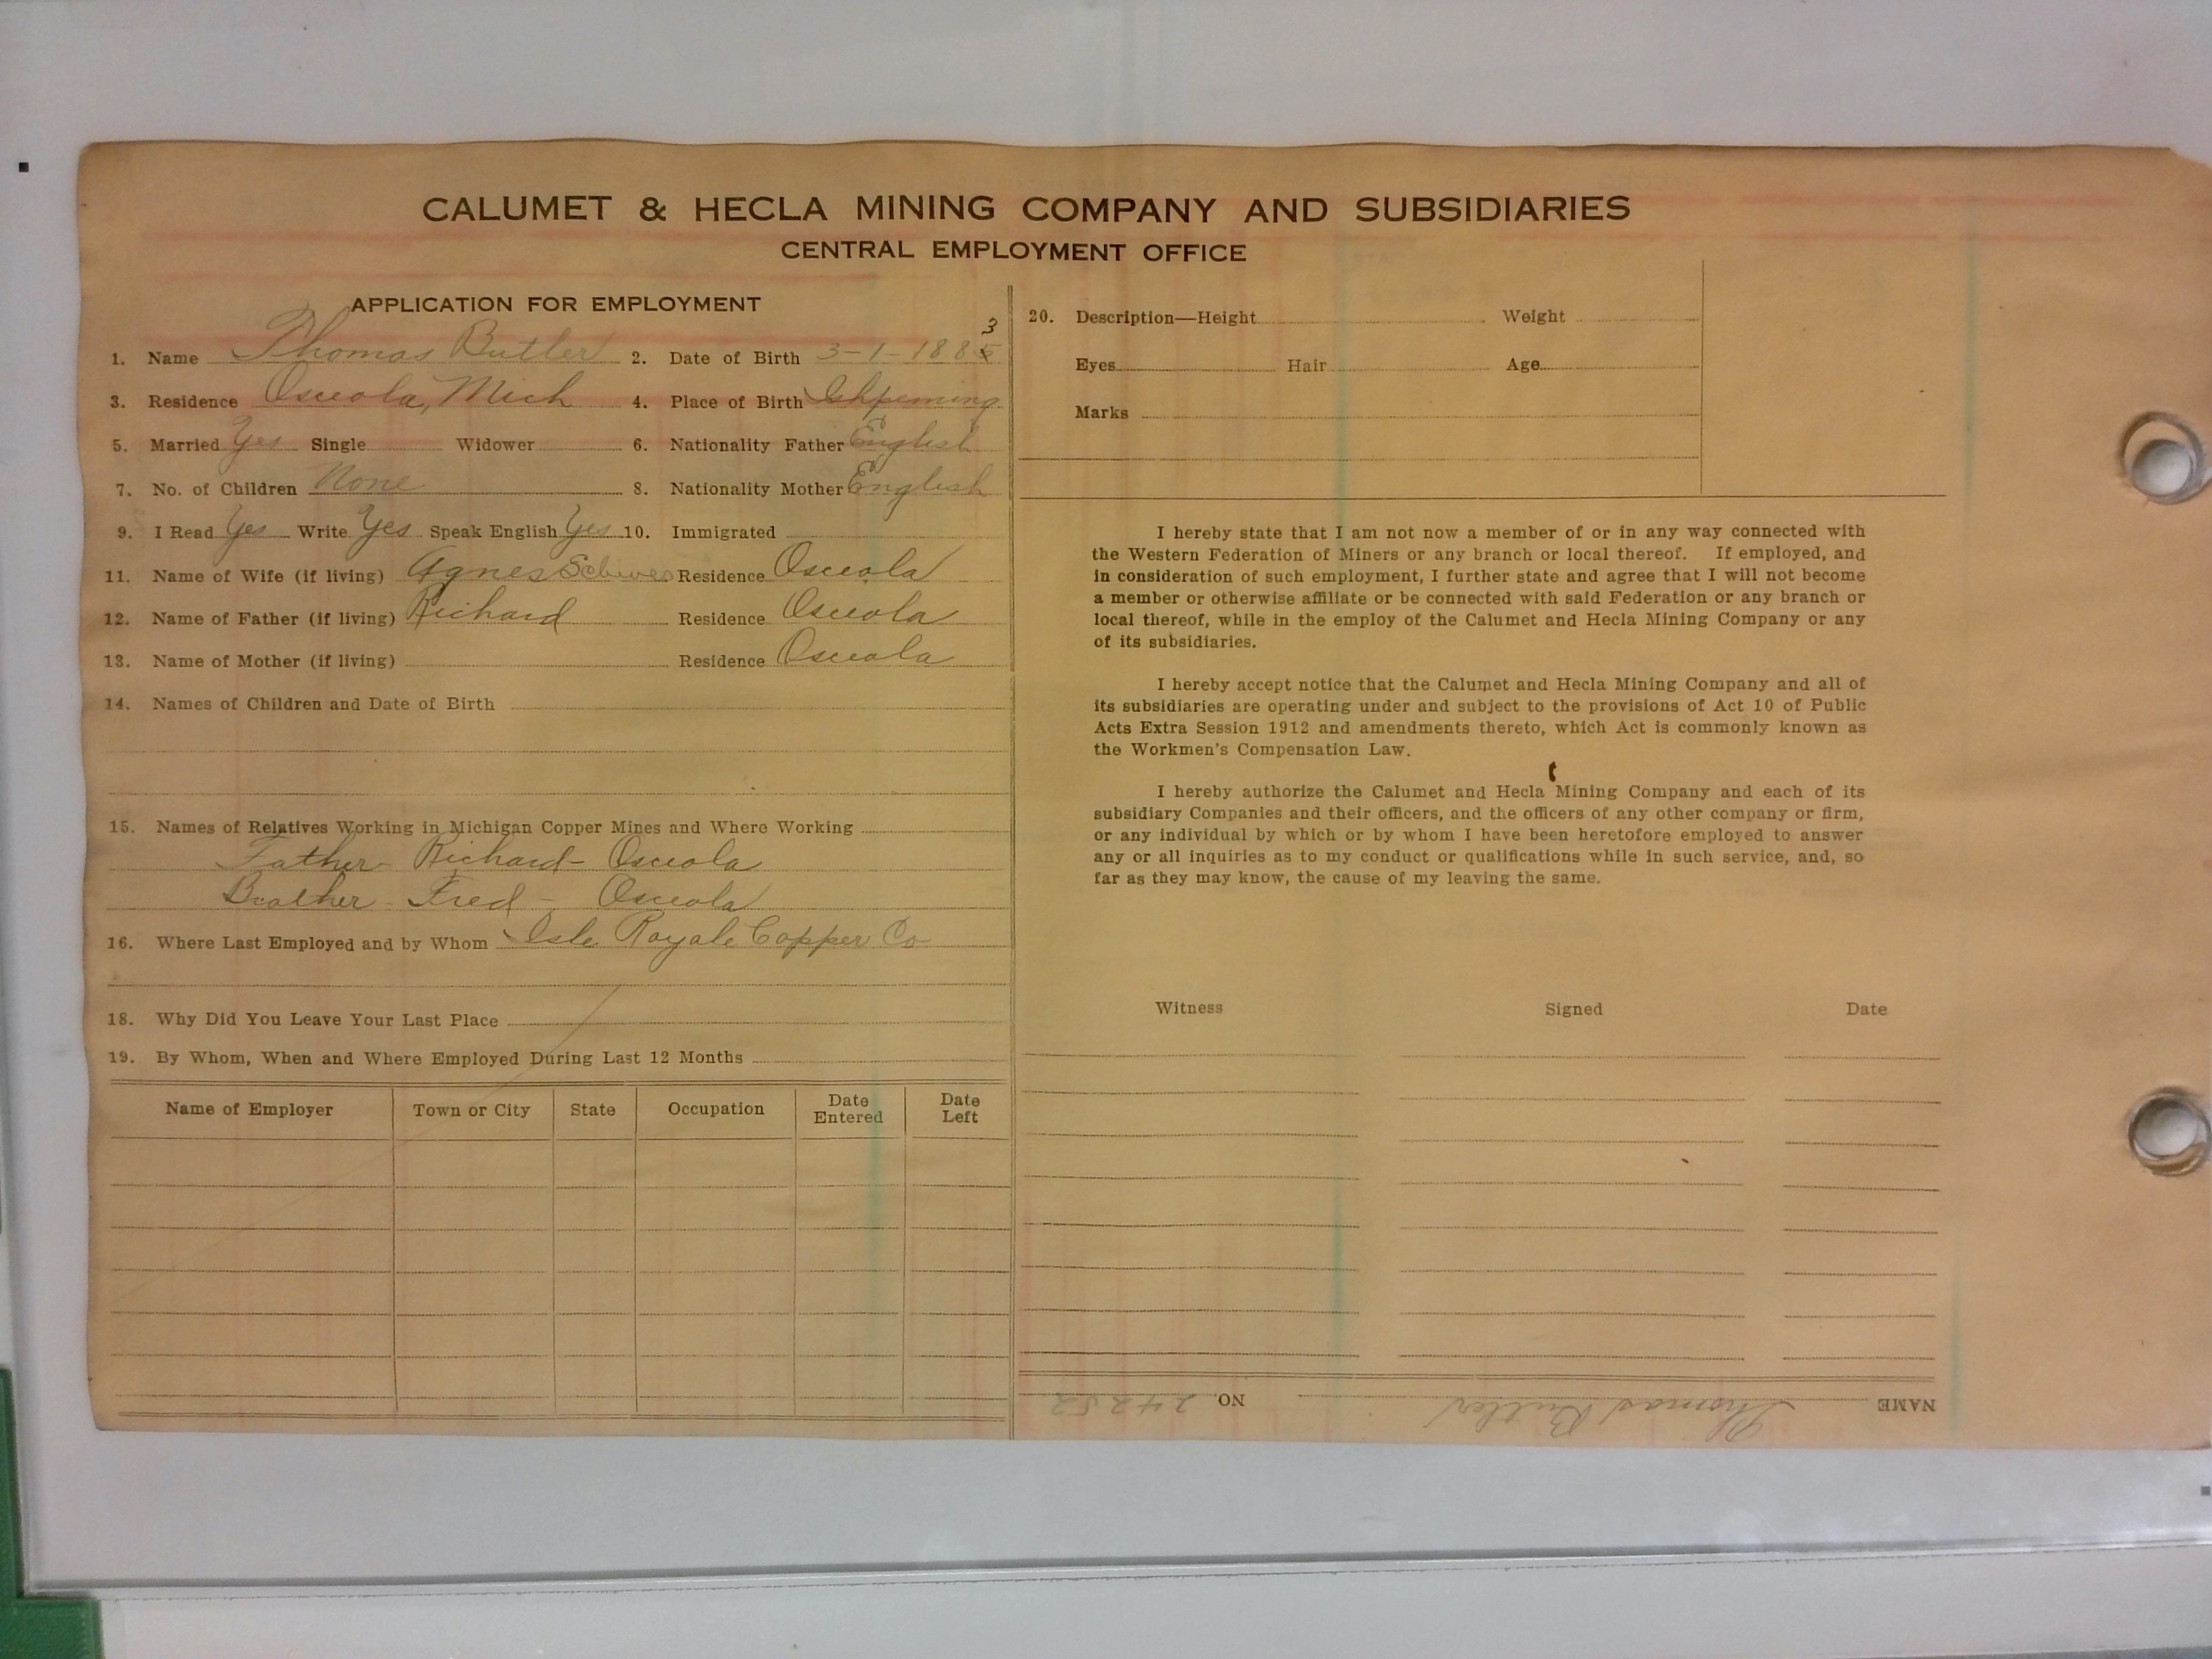 CALUMET & HECLA MINING COMPANY AND SUBSIDIARIES
CENTRAL EMPLOYMENT OFFICE
APPLICATION FOR EMPLOYMENT
3
1. Name Thomas Butler 2. Date of Birth 3-1-1885
3. Residence Osceola, Mich 4. Place of Birth Ishpeming
5. Married Yes Single Widower 6. Nationality Father English
7. No. of Children None 8. Nationality Mother English
9. I Read Yes Write Yes Speak English Yes 10. Immigrated
11. Name of Wife (if living) Agnes Residence Osceola
12. Name of Father (if living) Richard Residence Osceola
13. Name of Mother (if living) Residence Osceola
14. Names of Children and Date of Birth
15. Names of Relatives Working in Michigan Copper Mines and Where Working
Father - Richard - Osceola
Brother - Fred - Osceola
16. Where Last Employed and by Whom Isle Royale Copper Co
18. Why Did You Leave Your Last Place
19. By Whom, When and Where Employed During Last 12 Months
Name of Employer Town or City State Occupation Date Entered Date Left
20. Description—Height Weight
Eyes Hair Age
Marks
I hereby state that I am not now a member of or in any way connected with
the Western Federation of Miners or any branch or local thereof. If employed, and
in consideration of such employment, I further state and agree that I will not become
a member or otherwise affiliate or be connected with said Federation or any branch or
local thereof, while in the employ of the Calumet and Hecla Mining Company or any
of its subsidiaries.
I hereby accept notice that the Calumet and Hecla Mining Company and all of
its subsidiaries are operating under and subject to the provisions of Act 10 of Public
Acts Extra Session 1912 and amendments thereto, which Act is commonly known as
the Workmen's Compensation Law.
I hereby authorize the Calumet and Hecla Mining Company and each of its
subsidiary Companies and their officers, and the officers of any other company or firm,
or any individual by which or by whom I have been heretofore employed to answer
any or all inquiries as to my conduct or qualifications while in such service, and, so
far as they may know, the cause of my leaving the same.
Witness Signed Date
NAME Thomas Butler NO. 24252